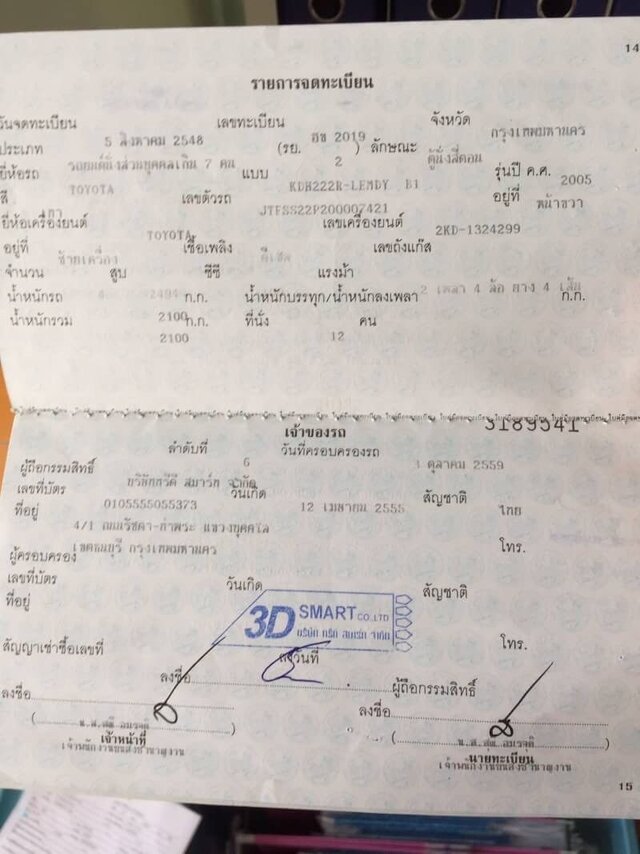 14
รายการจดทะเบียน
วันจดทะเบียน 5 สิงหาคม 2548 เลขทะเบียน ฮช 2019 จังหวัด กรุงเทพมหานคร
ประเภท รถยนต์นั่งส่วนบุคคลเกิน 7 คน (รย. 2 ) ลักษณะ ตู้นั่งสี่ตอน
ยี่ห้อรถ TOYOTA แบบ KDH222R-LEMDY B1 รุ่นปี ค.ศ. 2005
สี เทา เลขตัวรถ JTFSS22P200007421 อยู่ที่ หน้าขวา
ยี่ห้อเครื่องยนต์ TOYOTA เลขเครื่องยนต์ 2KD-1324299
อยู่ที่ ซ้ายเครื่อง เชื้อเพลิง ดีเซล เลขถังแก๊ส
จำนวน 4 สูบ 2494 ซีซี แรงม้า 2 เพลา 4 ล้อ ยาง 4 เส้น
น้ำหนักรถ 2100 ก.ก. น้ำหนักบรรทุก/น้ำหนักลงเพลา ก.ก.
น้ำหนักรวม 2100 ก.ก. ที่นั่ง 12 คน
3189541
เจ้าของรถ
ลำดับที่ 6 วันที่ครอบครองรถ ตุลาคม 2559
ผู้ถือกรรมสิทธิ์ บริษัททรีดี สมาร์ท จำกัด
เลขที่บัตร 0105555055373 วันเกิด 12 เมษายน 2555 สัญชาติ ไทย
ที่อยู่ 4/1 ถนนรัชดา-ท่าพระ แขวงบุคคโล
เขตธนบุรี กรุงเทพมหานคร โทร.
ผู้ครอบครอง
เลขที่บัตร วันเกิด สัญชาติ
ที่อยู่
3D SMART CO.,LTD
บริษัท ทรีดี สมาร์ท จำกัด
โทร.
สัญญาเช่าซื้อเลขที่ ลงวันที่
ลงชื่อ ผู้ถือกรรมสิทธิ์
ลงชื่อ ลงชื่อ
เจ้าหน้าที่ นายทะเบียน
เจ้าพนักงานขนส่งชำนาญงาน เจ้าพนักงานขนส่งชำนาญงาน
15